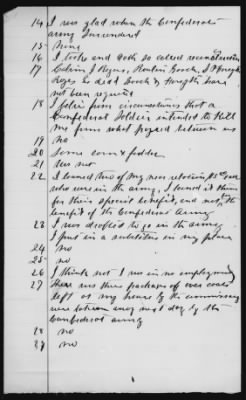 14 I was glad when the Confederate
army Surrendered
15 None
16 I took and both so called
17 Calvin J Reyes,
Reyes is dead
not been requested
18 I felt from circumstances that a
Confederate Soldier intended to kill
me from what passed between us
19 No
20 Some corn & fodder
21 Was not
22 I loaned two of my near relations,
who were in the army, I loaned it them
for their special benefit, and not for the
benefit of the Confederate Army
23 I was drafted to go in the army
I put in a substitute in my place
24 no
25 no
26 I think not I was in no employment
27 There was three packages of over coats
left at my house by the
was taken away next day by the
Confederate army
28 no
29 no